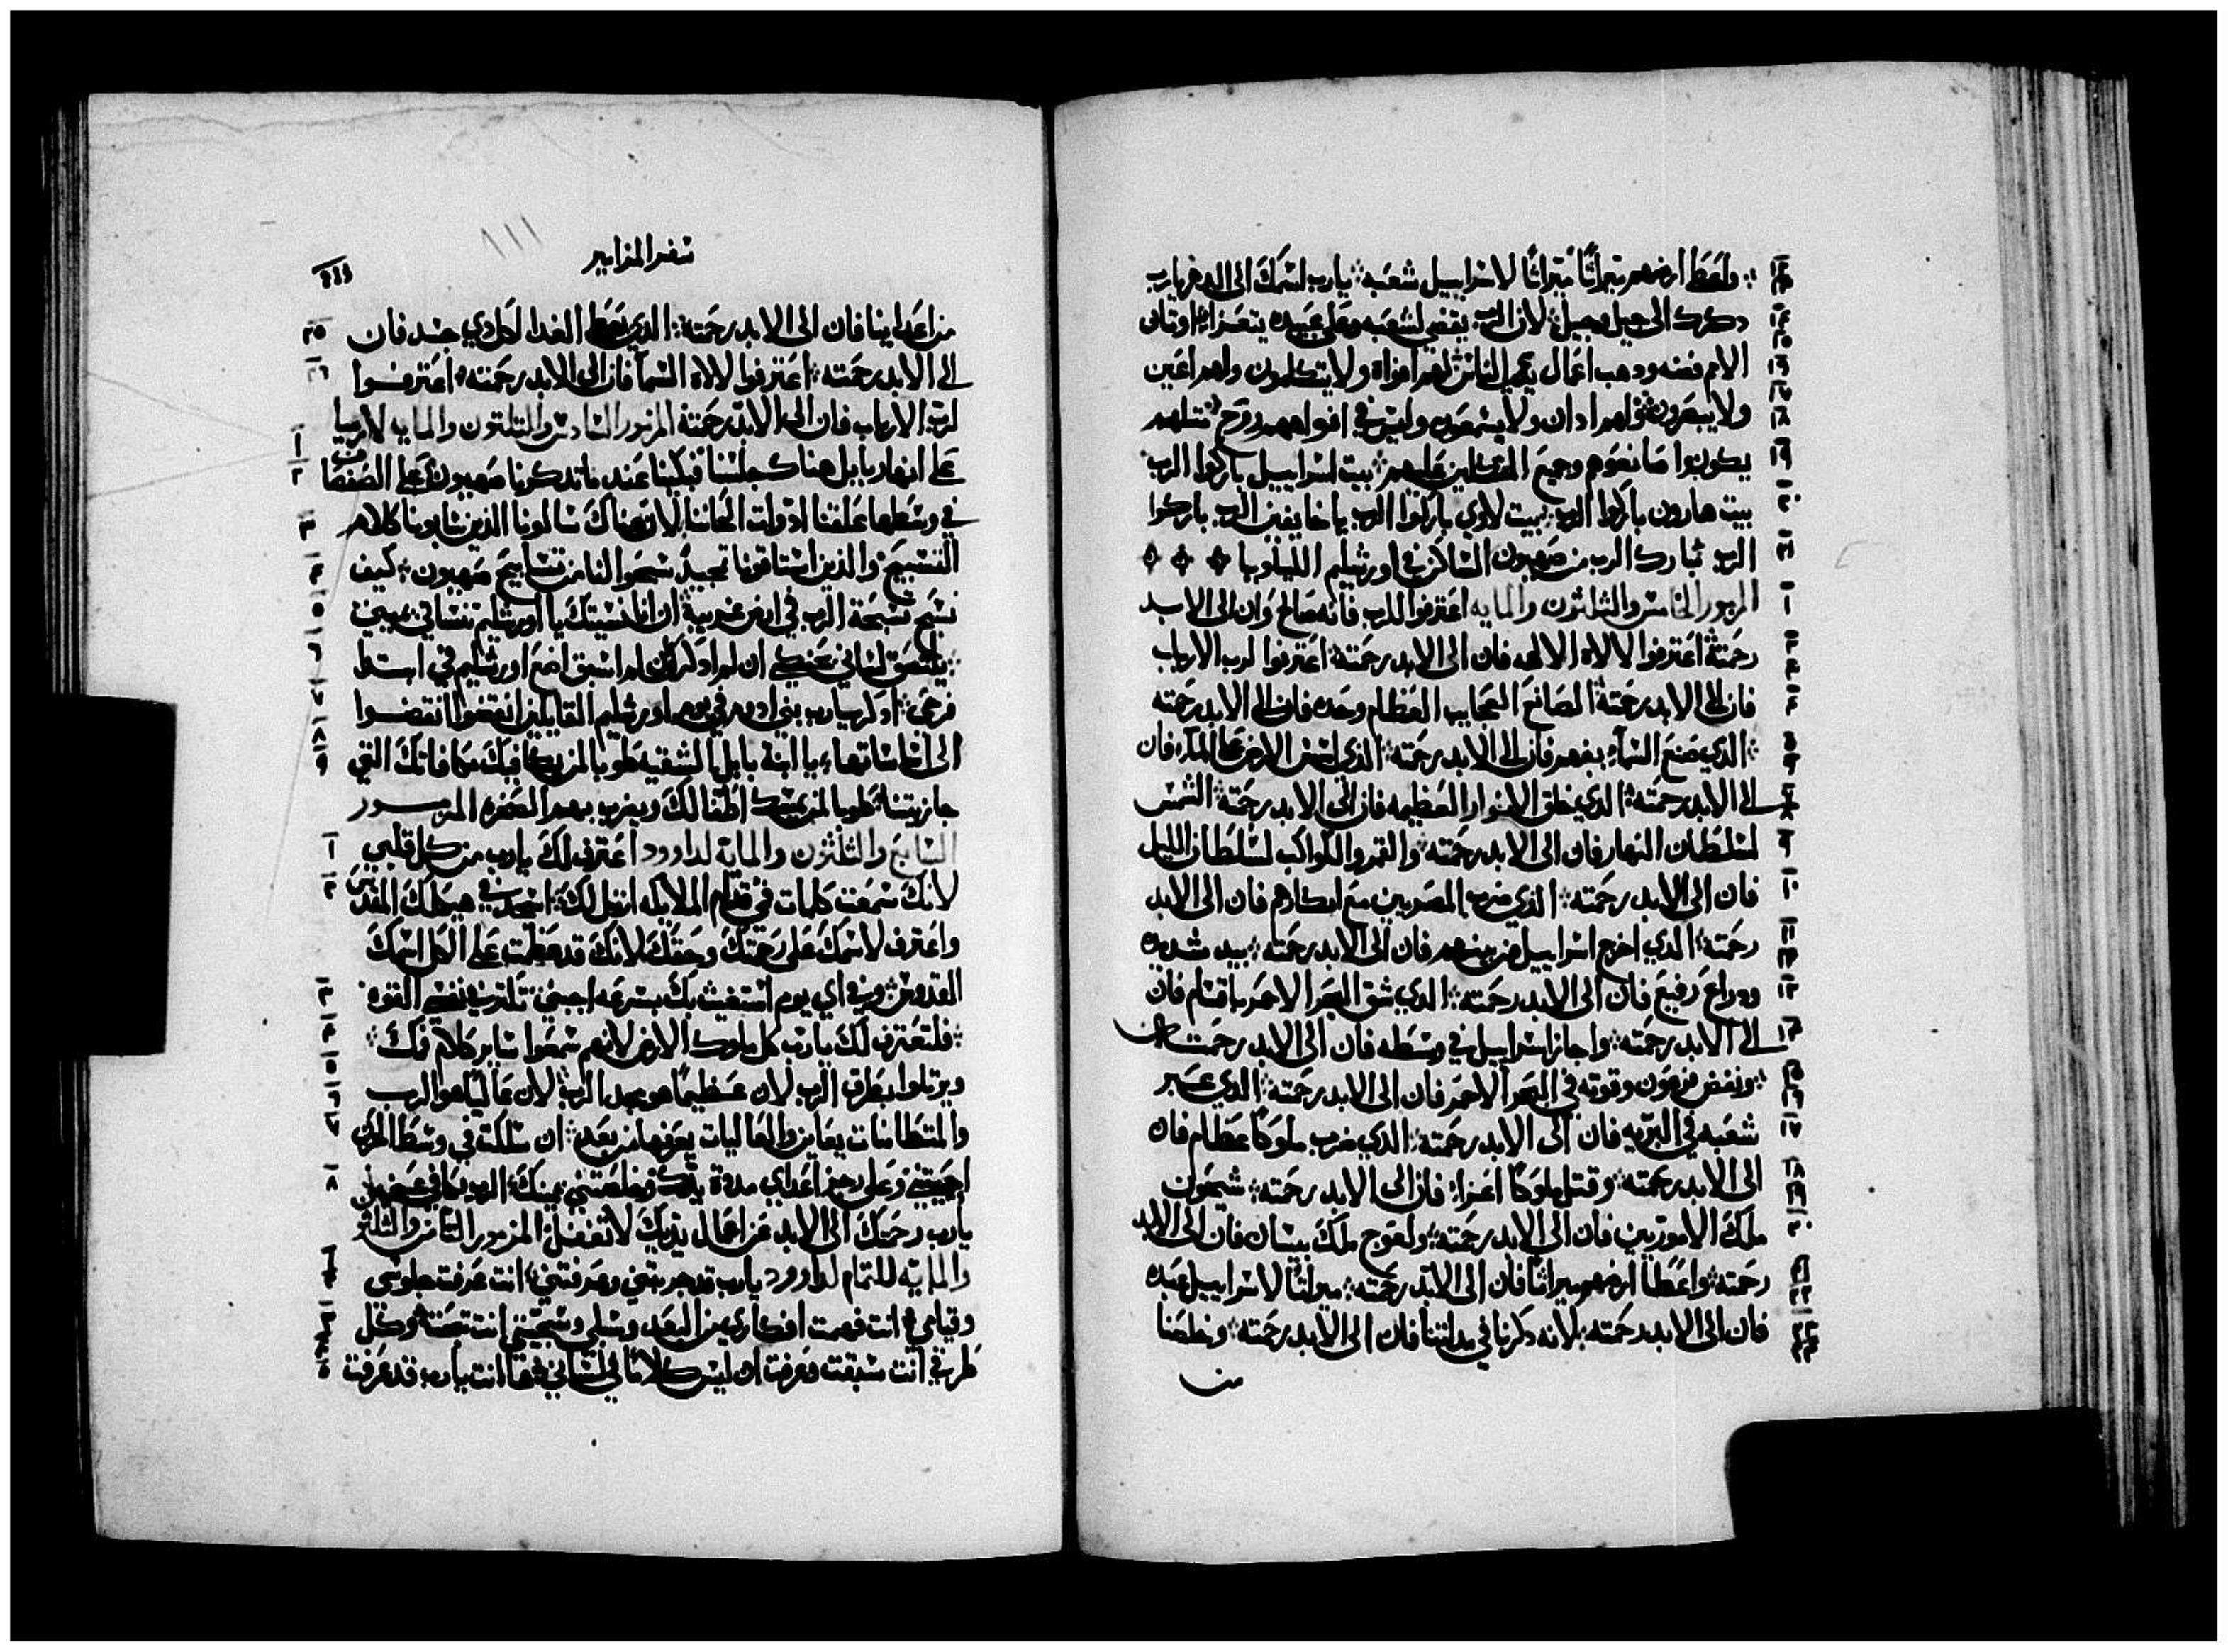 واعطا ارضهم ميراثا ميراثا لاسراييل شعبه يارب اسمك الى الدهر يارب
دكرك الى جيل وجيل لان الرب يقضي لشعبه وعلى عبيده يتعزا اوتان
الامم فضه ودهب اعمال يدي الناس لهم افواه ولا يتكلمون ولهم اعين
ولا يبصرون ولهم ادان ولا يسمعون وليس في افواههم روح مثلهم
يكونوا صانعوهم وجميع المتكلين عليهم بيت اسراييل باركوا الرب
بيت هارون باركوا الرب بيت لاوي باركوا الرب يا خايفين الرب باركوا
الرب تبارك الرب من صهيون الساكن في اورشليم الليلويا
المزمور الخامس والثلثون والمايه اعترفوا للرب فانه صالح وان الى الابد
رحمته اعترفوا لالاه الالهه فان الى الابد رحمته اعترفوا لرب الارباب
فان الى الابد رحمته الصانع العجايب العظام وحده فان الى الابد رحمته
الذي صنع السمآء بفهم فان الى الابد رحمته الذي اسس الارض على المآء فان
الى الابد رحمته الذي خلق الانوار العظيمه فان الى الابد رحمته الشمس
لسلطان النهار فان الى الابد رحمته والقمر والكواكب لسلطان الليل
فان الى الابد رحمته الذي ضرب المصريين مع ابكارهم فان الى الابد
رحمته الذي اخرج اسراييل من بينهم فان الى الابد رحمته بيد شديده
ودراع رفيع فان الى الابد رحمته الذي شق البحر الاحمر باقسام فان
الى الابد رحمته واجاز اسراييل في وسطه فان الى الابد رحمته
ونفض فرعون وقوته في البحر الاحمر فان الى الابد رحمته الذي عبر
شعبه في البريه فان الى الابد رحمته الذي ضرب ملوكا عظام فان
الى الابد رحمته وقتل ملوكا اعزا فان الى الابد رحمته شيحون
ملك الاموريين فان الى الابد رحمته ولعوج ملك بيسان فان الى الابد
رحمته واعطا ارضهم ميراثا فان الى الابد رحمته ميراثا لاسراييل عبده
فان الى الابد رحمته لانه دكرنا في مدلتنا فان الى الابد رحمته وخلصنا
من
سفر المزامير
من اعداينا فان الى الابد رحمته الذي يعطي الغدا لكل دي جسد فان
الى الابد رحمته اعترفوا لالاه السمآ فان الى الابد رحمته اعترفوا
لرب الارباب فان الى الابد رحمته المزمور السادس والثلثون والمايه لارميا
على انهار بابل هناك جلسنا فبكينا عند ما تدكرنا صهيون على الصفصاف
في وسطها علقنا ادوات الحاننا لان هناك سالونا الذين سبونا كلام
التسبيح والذين استاقونا تمجيد سبحوا لنا من تسابيح صهيون كيف
نسبح تسبحة الرب في ارض غريبة ان انا نسيتك يا اورشليم تنساني يميني
يلتصق لساني بحنكي ان لم ادكرك ان لم اسبق اضع اورشليم في ابتدا
فرحي ادكر يارب بني ادوم في يوم اورشليم القايلين انقضوا انقضوا
الى اساساتها يا ابنة بابل الشقيه طوبا لمن يكافيك مكافاتك التي
جازيتنا طوبا لمن يمسك اطفالك ويضرب بهم الصخره المزمور
السابع والثلثون والماية لداوود اعترف لك يارب من كل قلبي
لانك سمعت كلمات في قدام الملايكه ارتل لك اسجد في هيكلك المقدس
واعترف لاسمك على رحمتك وحقك لانك قد عظمت على الكل اسمك
القدوس في اي يوم استغيث بك بسرعه اجبني تكثر في نفسي القوه
فلتعترف لك يارب كل ملوك الارض لانهم سمعوا ساير كلام فمك
ويرتلوا بطرق الرب لان عظيما هو مجد الرب لان عاليا هو الرب
والمتطامنات يعاين والعاليات يعرفها من بعد ان سلكت في وسط الحزن
احييتني وعلى رجز اعداي مددة يدك وخلصتني يمينك الرب يكافي عني
يارب رحمتك الى الابد عن اعمال يديك لا تغفل المزمور الثامن والثلثون
والمايه للتمام لداوود يارب قد جربتني وعرفتني انت عرفت جلوسي
وقيامي انت فهمت افكاري من البعد وسبلي انت وكل
طرقي انت سبقت فعرفت ان ليس كلاما في لساني ها انت يارب قد عرفت